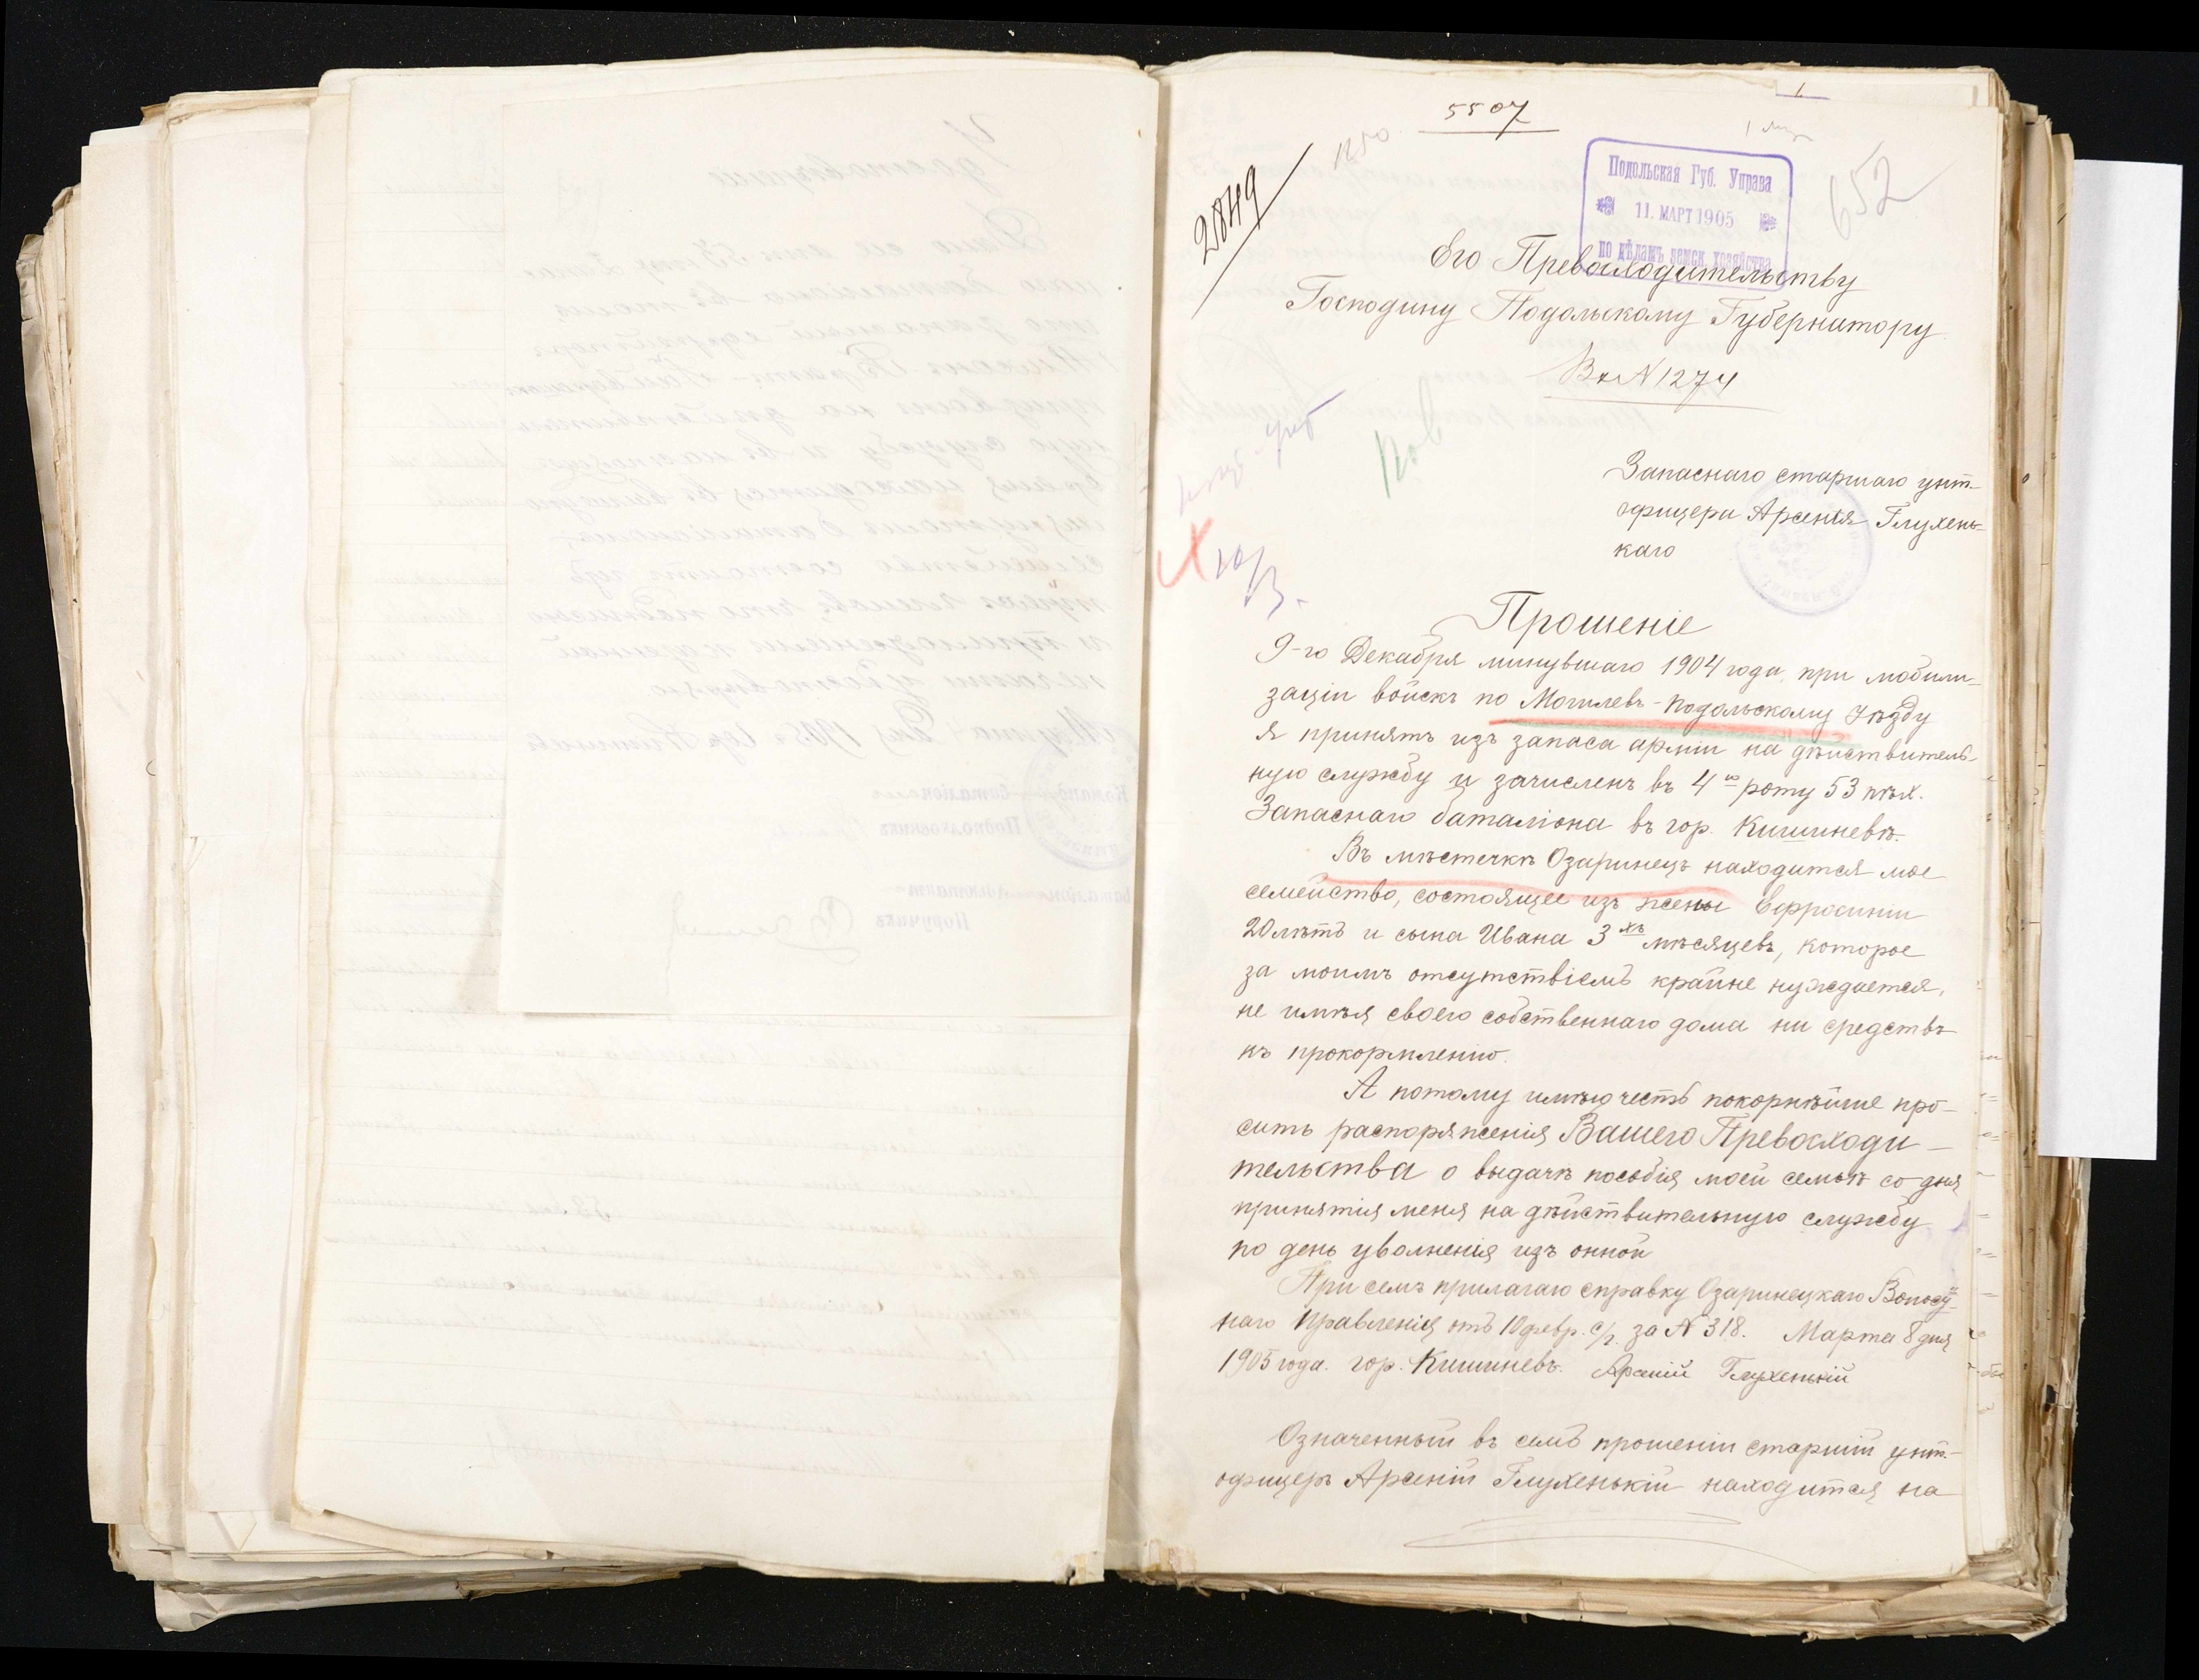 5507
28149
652
Подольская Губ. Управа
11. МАРТ 1905
по дѣламъ земск. хозяйства
Его Превосходительству
Господину Подольскому Губернатору
Вх N 1274
Запаснаго старшаго унт-
офицера Арсенія Глухень-
каго
Прошеніе
9-го Декабря минувшаго 1904 года, при мобили-
заціи войскъ по Могилевъ-Подольскому Уѣзду
я принятъ изъ запаса арміи на дѣйствитель-
ную службу и зачисленъ въ 4ю роту 53 пѣх.
Запаснаго баталіона въ гор. Кишиневѣ.
Въ мѣстечкѣ Озаринецъ находится мое
семейство, состоящее изъ жены Ефросиніи
20 лѣтъ и сына Ивана 3хъ мѣсяцевъ, которое
за моимъ отсутствіемъ крайне нуждается,
не имѣя своего собственнаго дома ни средствъ
къ прокормленію.
А потому имѣю честь покорнѣйше про-
сить распоряженія Вашего Превосходи-
тельства о выдачѣ пособія моей семьѣ со дня
принятія меня на дѣйствительную службу
по день уволненія изъ онной
При семъ прилагаю справку Озаринецкаго
наго Правленія отъ 10 февр. с/г. за N 318. Марта 8 дня
1905 года. гор. Кишиневъ. Арсеній Глухенькій
Означенный въ семъ прошеніи старшій унт-
офицеръ Арсеній Глухенькій находится на